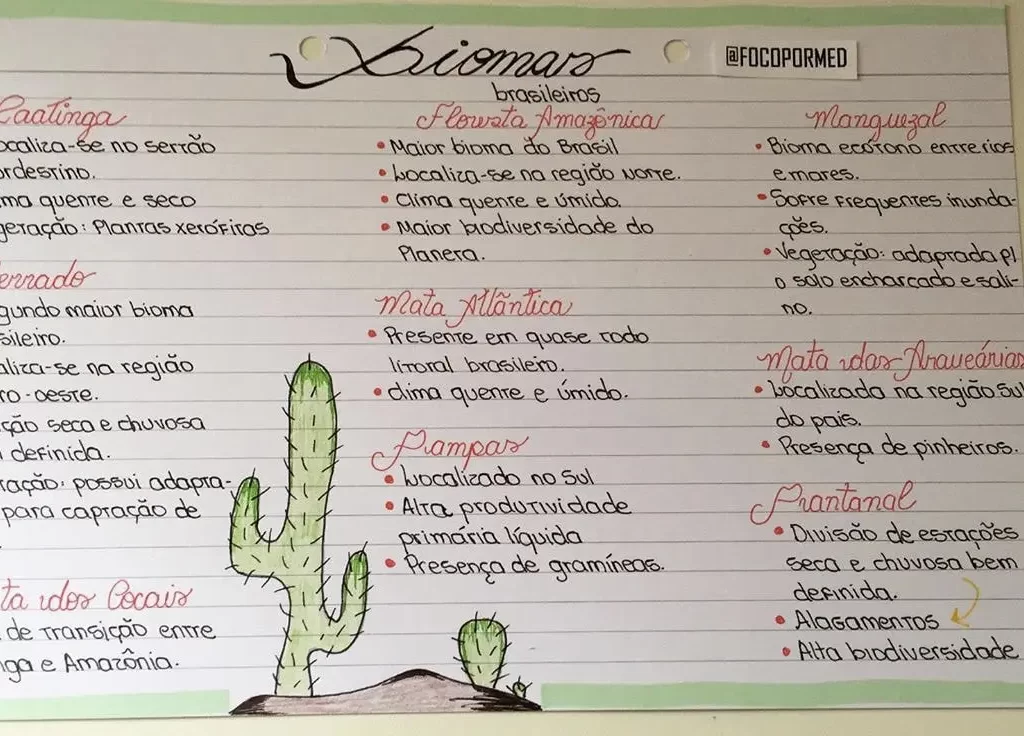 biomas
@FOCOPORMED
brasileiros
Caatinga
ocaliza-se no sertão
ordestino.
ma quente e seco
getação: Plantas xerófitas
errado
gundo maior bioma
sileiro.
aliza-se na região
ro-oeste.
ção seca e chuvosa
definida.
tação: possui adapta-
para captação de
ta dos Cocais
de transição entre
nga e Amazônia.
Floresta Amazônica
• Maior bioma do Brasil
• Localiza-se na região Norte.
• Clima quente e úmido.
• Maior biodiversidade do
Planeta.
Mata Atlântica
• Presente em quase todo
litoral brasileiro.
• clima quente e úmido.
Pampas
• Localizado no Sul
• Alta produtividade
primária líquida
• Presença de gramíneas.
Manguezal
• Bioma ecótono entre rios
e mares.
• Sofre frequentes inunda-
ções.
• Vegetação: adaptada p/
o solo encharcado e sali-
no.
Mata das Araucárias
• Localizada na região Sul
do país.
• Presença de pinheiros.
Prantanal
• Divisão de estações
seca e chuvosa bem
definida.
• Alagamentos
• Alta biodiversidade